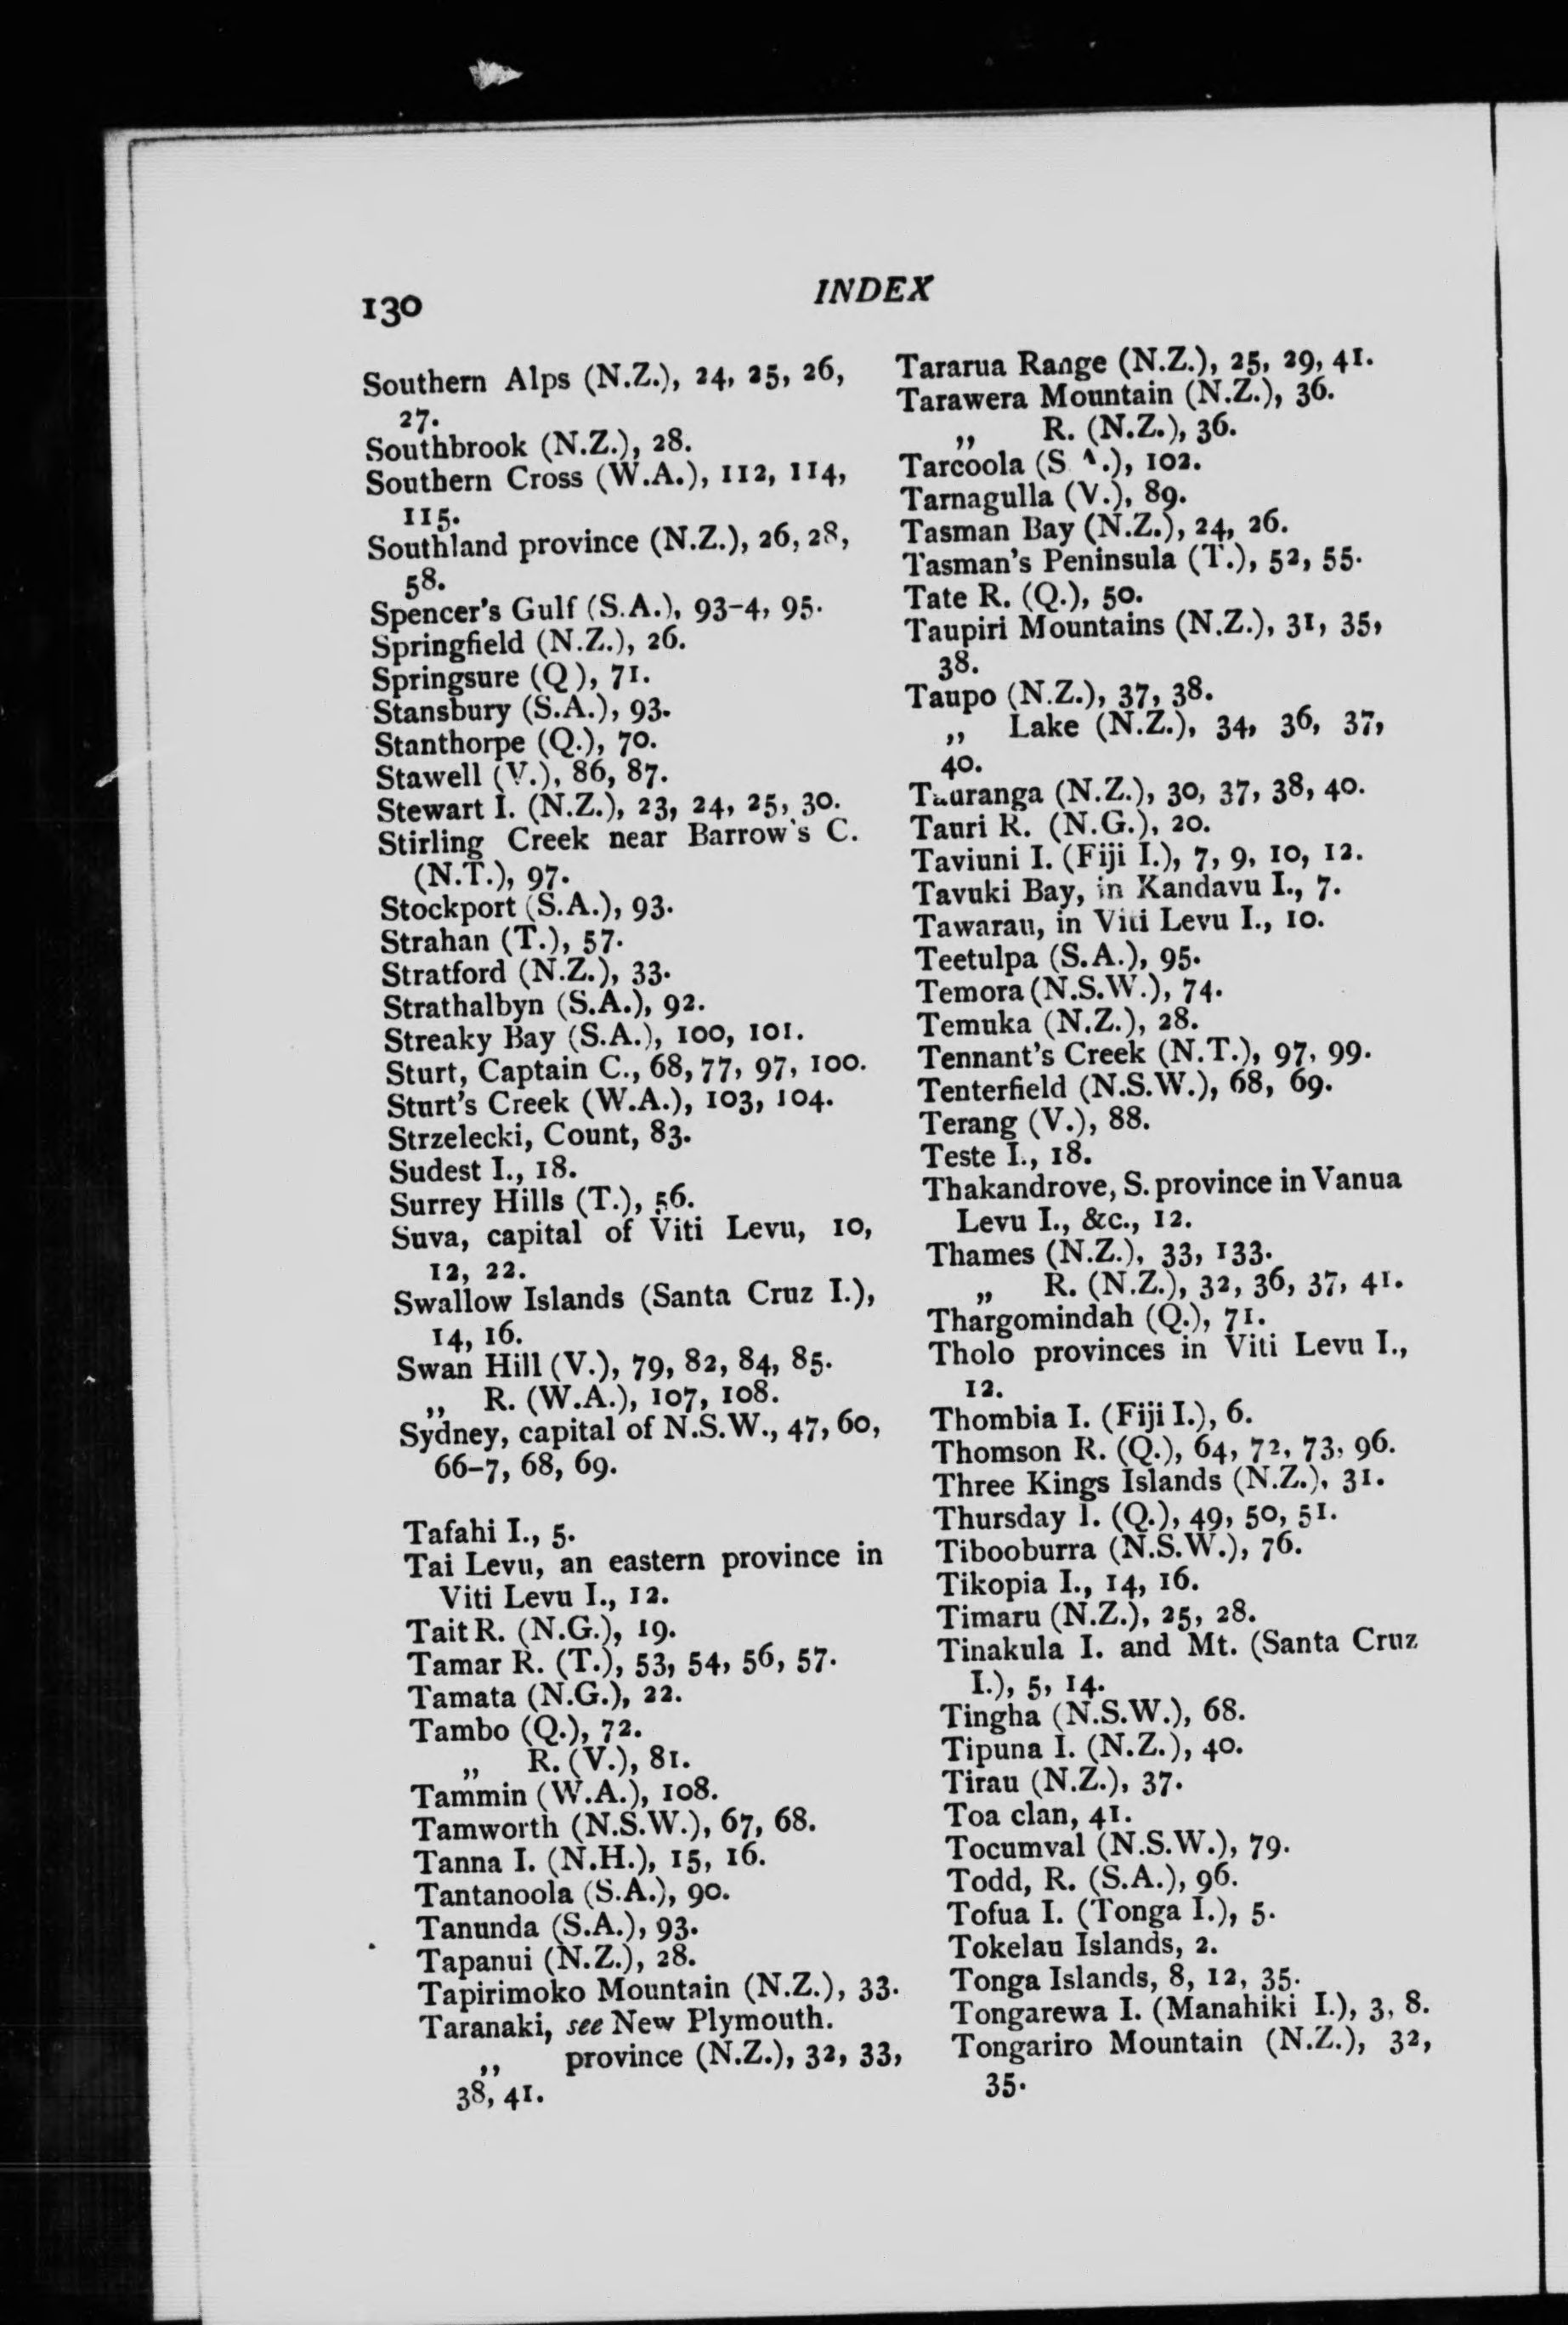 130
INDEX
Southern Alps (N.Z.), 24, 25, 26,
27.
Southbrook (N.Z.), 28.
Southern Cross (W.A.), 112, 114,
115.
Southland province (N.Z.), 26, 28,
58.
Spencer's Gulf (S.A.), 93-4, 95.
Springfield (N.Z.), 26.
Springsure (Q), 71.
Stansbury (S.A.), 93.
Stanthorpe (Q.), 70.
Stawell (V.), 86, 87.
Stewart I. (N.Z.), 23, 24, 25, 30.
Stirling Creek near Barrow's C.
(N.T.), 97.
Stockport (S.A.), 93.
Strahan (T.), 57.
Stratford (N.Z.), 33.
Strathalbyn (S.A.), 92.
Streaky Bay (S.A.), 100, 101.
Sturt, Captain C., 68, 77, 97, 100.
Sturt's Creek (W.A.), 103, 104.
Strzelecki, Count, 83.
Sudest I., 18.
Surrey Hills (T.), 56.
Suva, capital of Viti Levu, 10,
12, 22.
Swallow Islands (Santa Cruz I.),
14, 16.
Swan Hill (V.), 79, 82, 84, 85.
„ R. (W.A.), 107, 108.
Sydney, capital of N.S.W., 47, 60,
66-7, 68, 69.
Tafahi I., 5.
Tai Levu, an eastern province in
Viti Levu I., 12.
Tait R. (N.G.), 19.
Tamar R. (T.), 53, 54, 56, 57.
Tamata (N.G.), 22.
Tambo (Q.), 72.
„ R. (V.), 81.
Tammin (W.A.), 108.
Tamworth (N.S.W.), 67, 68.
Tanna I. (N.H.), 15, 16.
Tantanoola (S.A.), 90.
Tanunda (S.A.), 93.
Tapanui (N.Z.), 28.
Tapirimoko Mountain (N.Z.), 33.
Taranaki, see New Plymouth.
„ province (N.Z.), 32, 33,
38, 41.
Tararua Range (N.Z.), 25, 29, 41.
Tarawera Mountain (N.Z.), 36.
„ R. (N.Z.), 36.
Tarcoola (S A.), 102.
Tarnagulla (V.), 89.
Tasman Bay (N.Z.), 24, 26.
Tasman's Peninsula (T.), 52, 55.
Tate R. (Q.), 50.
Taupiri Mountains (N.Z.), 31, 35,
38.
Taupo (N.Z.), 37, 38.
„ Lake (N.Z.), 34, 36, 37,
40.
Tauranga (N.Z.), 30, 37, 38, 40.
Tauri R. (N.G.), 20.
Taviuni I. (Fiji I.), 7, 9, 10, 12.
Tavuki Bay, in Kandavu I., 7.
Tawarau, in Viti Levu I., 10.
Teetulpa (S.A.), 95.
Temora (N.S.W.), 74.
Temuka (N.Z.), 28.
Tennant's Creek (N.T.), 97, 99.
Tenterfield (N.S.W.), 68, 69.
Terang (V.), 88.
Teste I., 18.
Thakandrove, S. province in Vanua
Levu I., &c., 12.
Thames (N.Z.), 33, 133.
„ R. (N.Z.), 32, 36, 37, 41.
Thargomindah (Q.), 71.
Tholo provinces in Viti Levu I.,
12.
Thombia I. (Fiji I.), 6.
Thomson R. (Q.), 64, 72, 73, 96.
Three Kings Islands (N.Z.), 31.
Thursday I. (Q.), 49, 50, 51.
Tibooburra (N.S.W.), 76.
Tikopia I., 14, 16.
Timaru (N.Z.), 25, 28.
Tinakula I. and Mt. (Santa Cruz
I.), 5, 14.
Tingha (N.S.W.), 68.
Tipuna I. (N.Z.), 40.
Tirau (N.Z.), 37.
Toa clan, 41.
Tocumval (N.S.W.), 79.
Todd, R. (S.A.), 96.
Tofua I. (Tonga I.), 5.
Tokelau Islands, 2.
Tonga Islands, 8, 12, 35.
Tongarewa I. (Manahiki I.), 3, 8.
Tongariro Mountain (N.Z.), 32,
35.